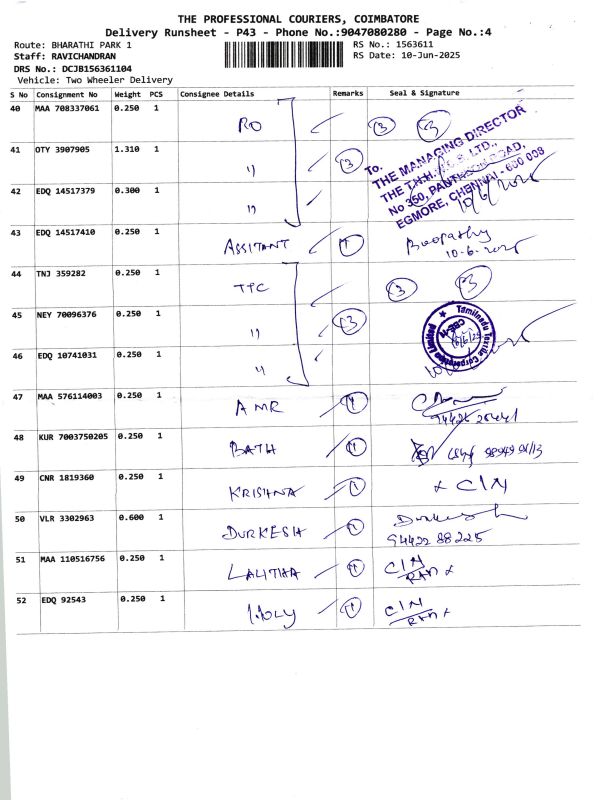 THE PROFESSIONAL COURIERS, COIMBATORE
Delivery Runsheet - P43 - Phone No.:9047080280 - Page No.:4
Route: BHARATHI PARK 1 RS No.: 1563611
Staff: RAVICHANDRAN RS Date: 10-Jun-2025
DRS No.: DCJB156361104
Vehicle: Two Wheeler Delivery
S No Consignment No Weight PCS Consignee Details Remarks Seal & Signature
40 MAA 708337061 0.250 1 RO 3 3
41 OTY 3907905 1.310 1 " 3
To,
THE MANAGING DIRECTOR
THE T.N.H. LTD.,
No 350, PANTHEON ROAD,
EGMORE, CHENNAI - 600 008
42 EDQ 14517379 0.300 1 "
43 EDQ 14517410 0.250 1 ASSITANT Boopathy
10-6-2025
44 TNJ 359282 0.250 1 TTC 3 3
45 NEY 70096376 0.250 1 " 3
Tamilnadu Textile Corporation Limited
46 EDQ 10741031 0.250 1 "
47 MAA 576114003 0.250 1 AMR
48 KUR 7003750205 0.250 1 BATH
49 CNR 1819360 0.250 1 KRISHNA 1 x C/N
50 VLR 3302963 0.600 1 DURKESH 1
94422 88225
51 MAA 110516756 0.250 1 LALITHA C/N
52 EDQ 92543 0.250 1 HOLY C/N